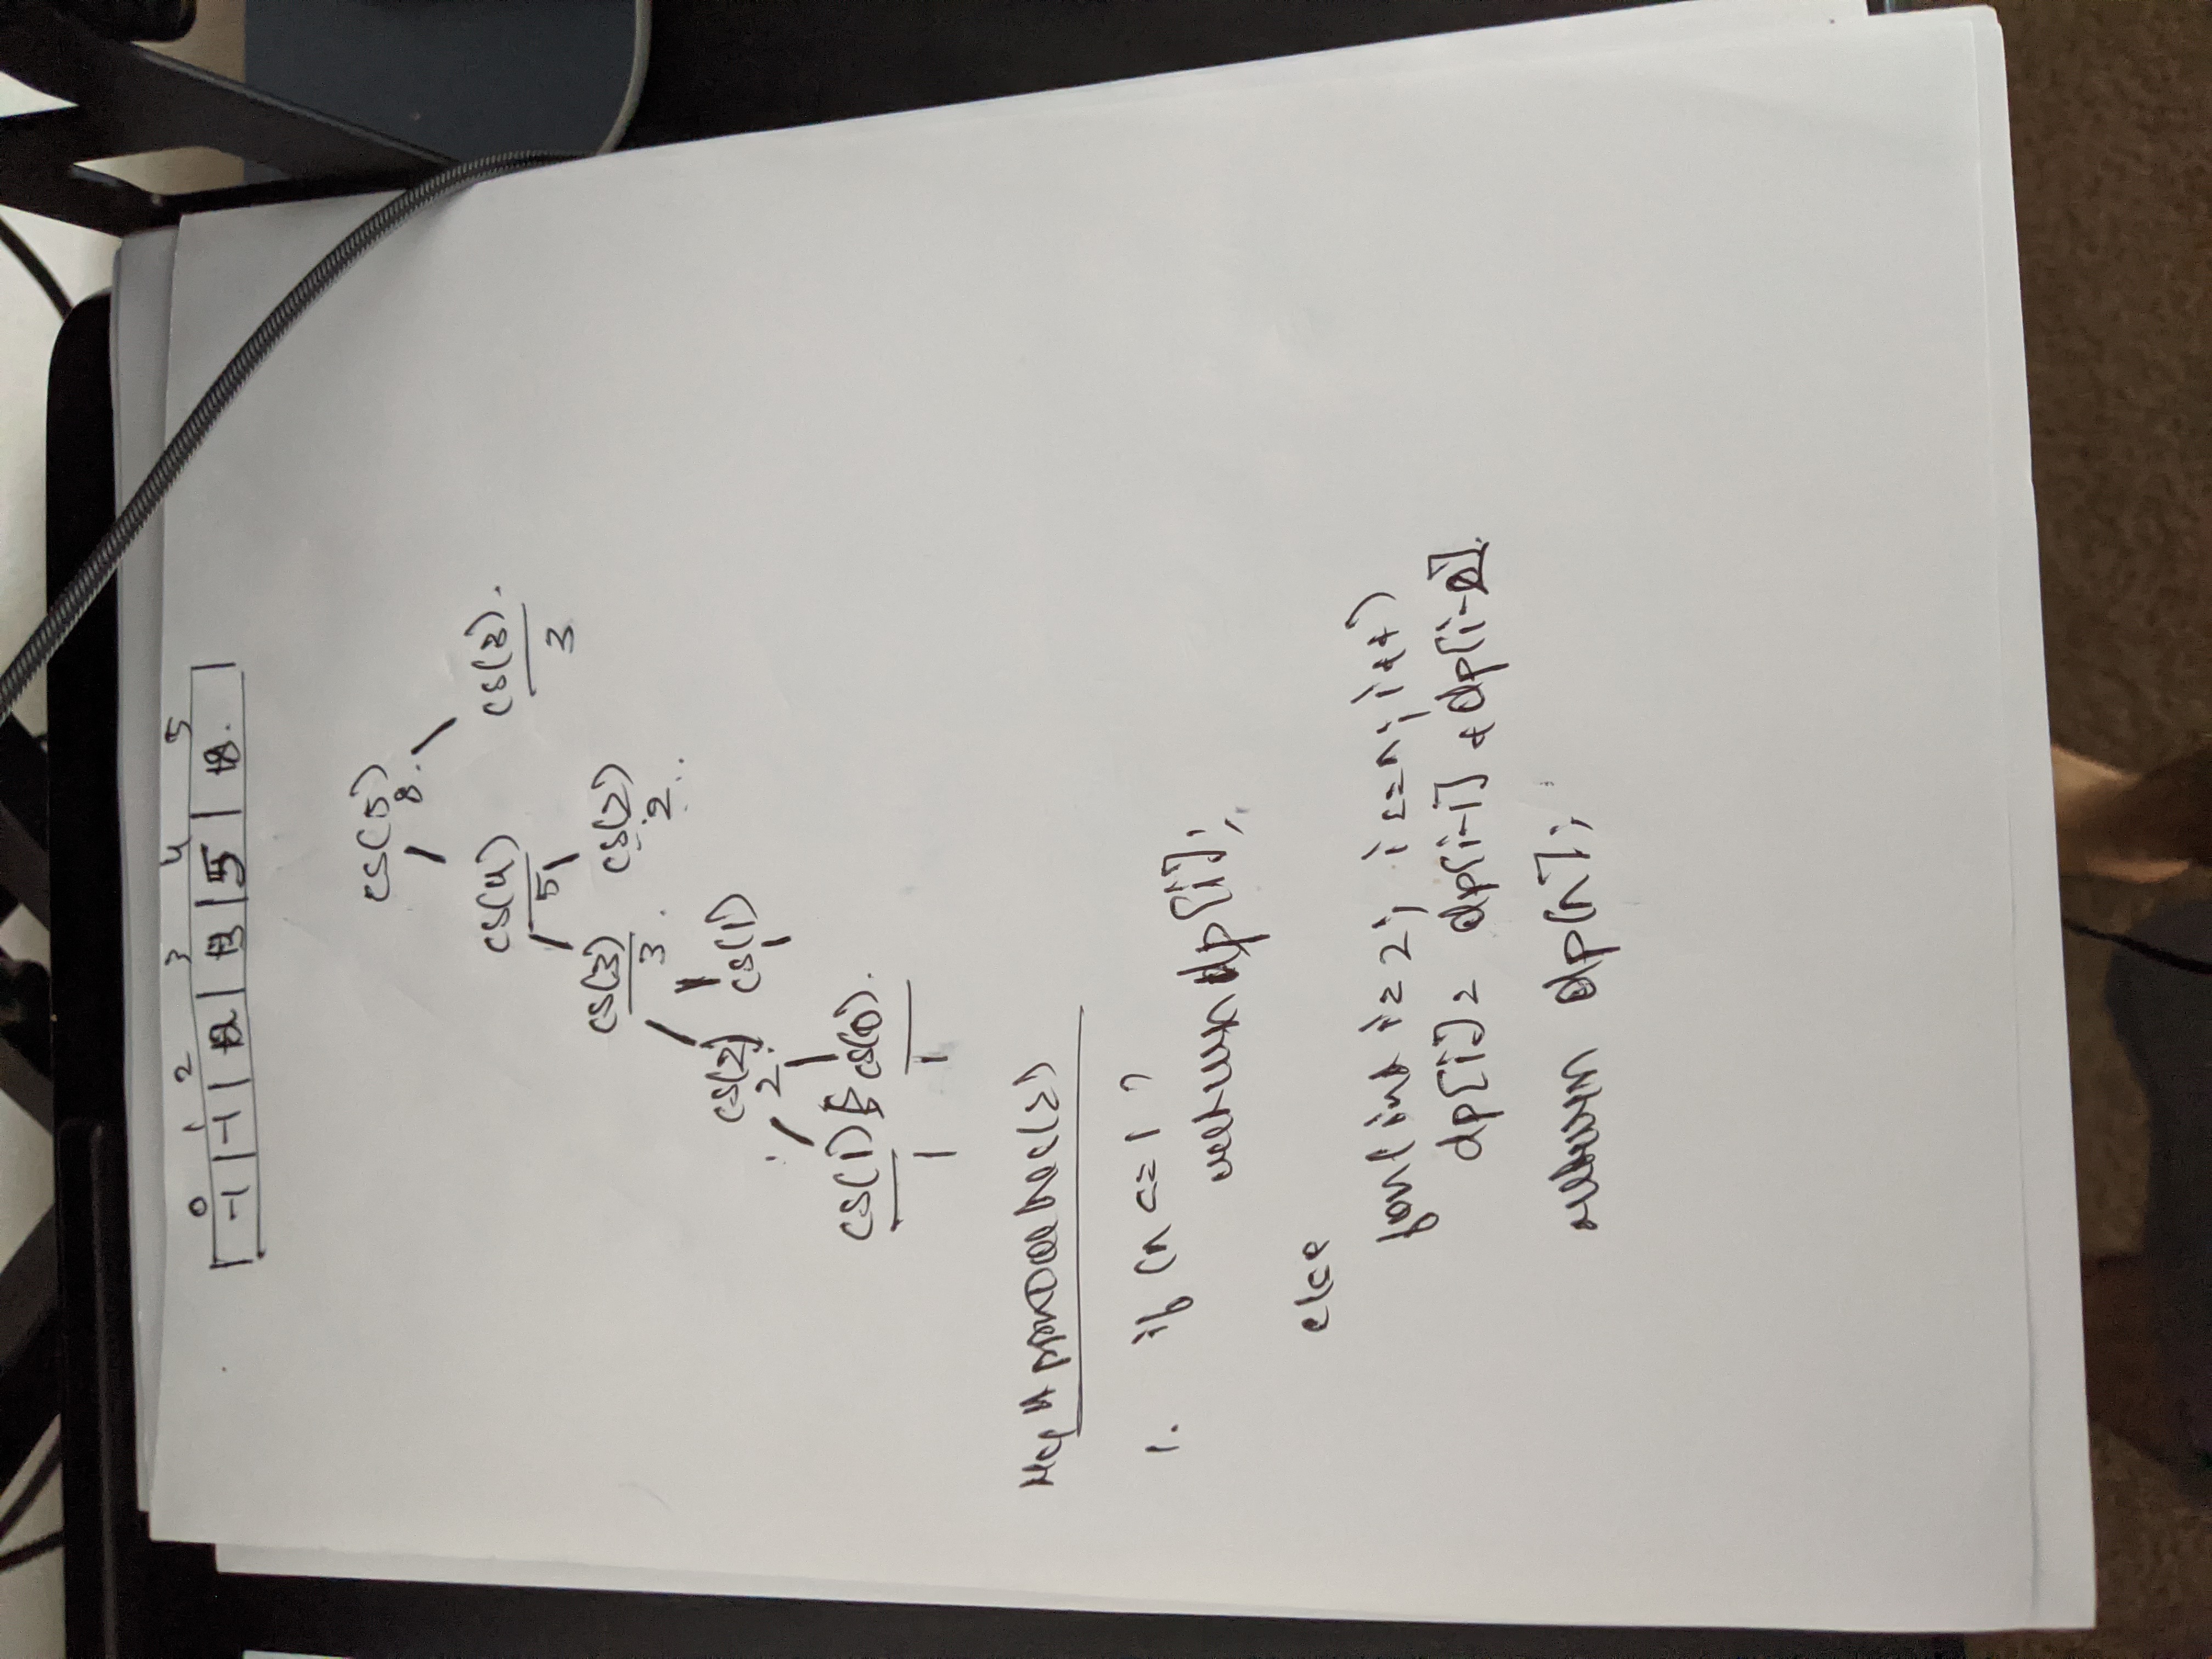 0 1 2 3 4 5
-1 | -1 | 2 | 3 | 5 | 8
cs(5)
8
cs(4) cs(3)
5 3
cs(3) cs(2)
3 2
cs(2) cs(1)
2
cs(1) cs(0)
1 1
1. if (n <= 1)
return dp[i];
else
for(int i=2; i<=n; i++)
dp[i] = dp[i-1] + dp[i-2]
return dp[n];